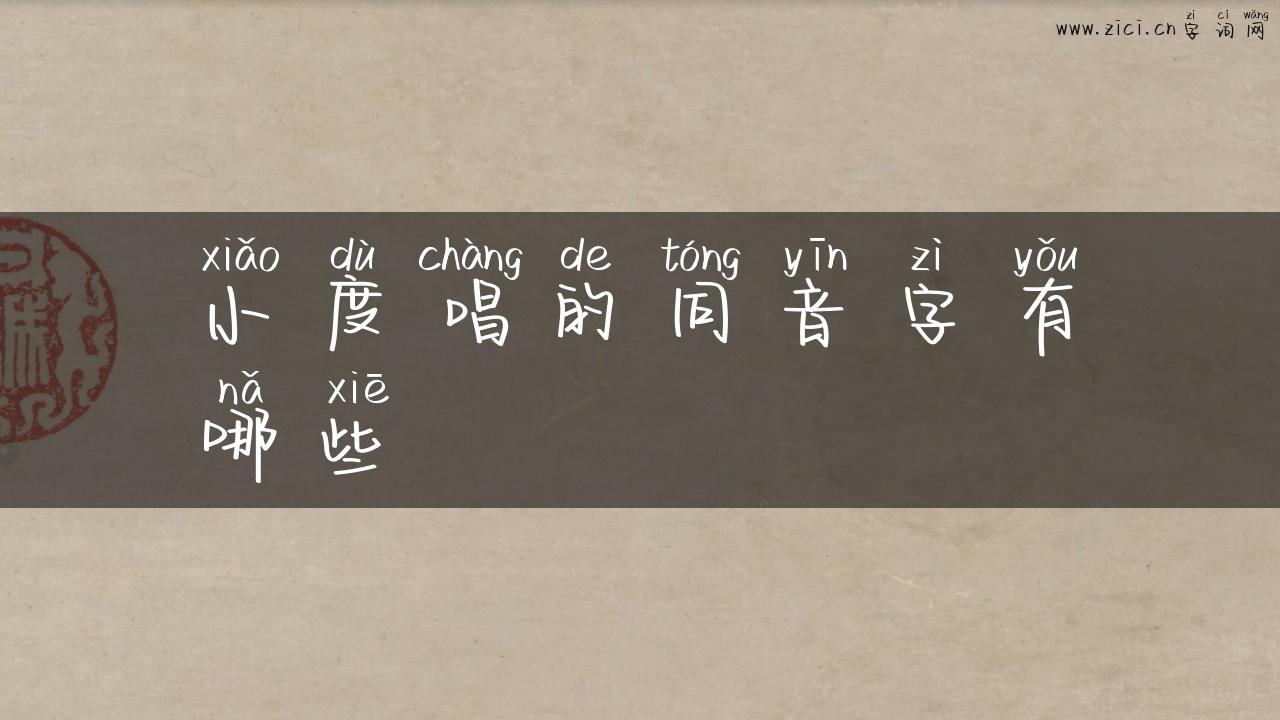 zì cí wǎng
www.zici.cn 字 词 网
xiǎo dù chàng de tóng yīn zì yǒu
小 度 唱 的 同 音 字 有
nǎ xiē
哪 些